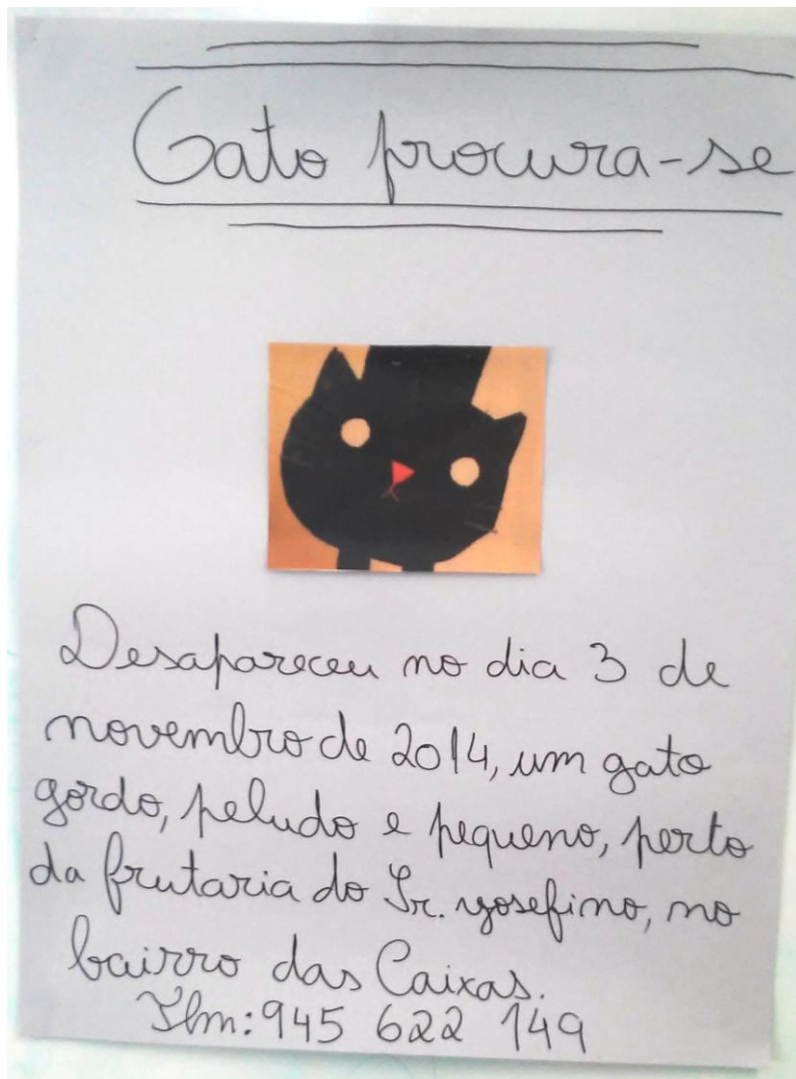 Gato procura-se
Desapareceu no dia 3 de
novembro de 2014, um gato
gordo, peludo e pequeno, perto
da frutaria do Sr. yosefino, no
bairro das Caixas.
Tlm: 945 622 149